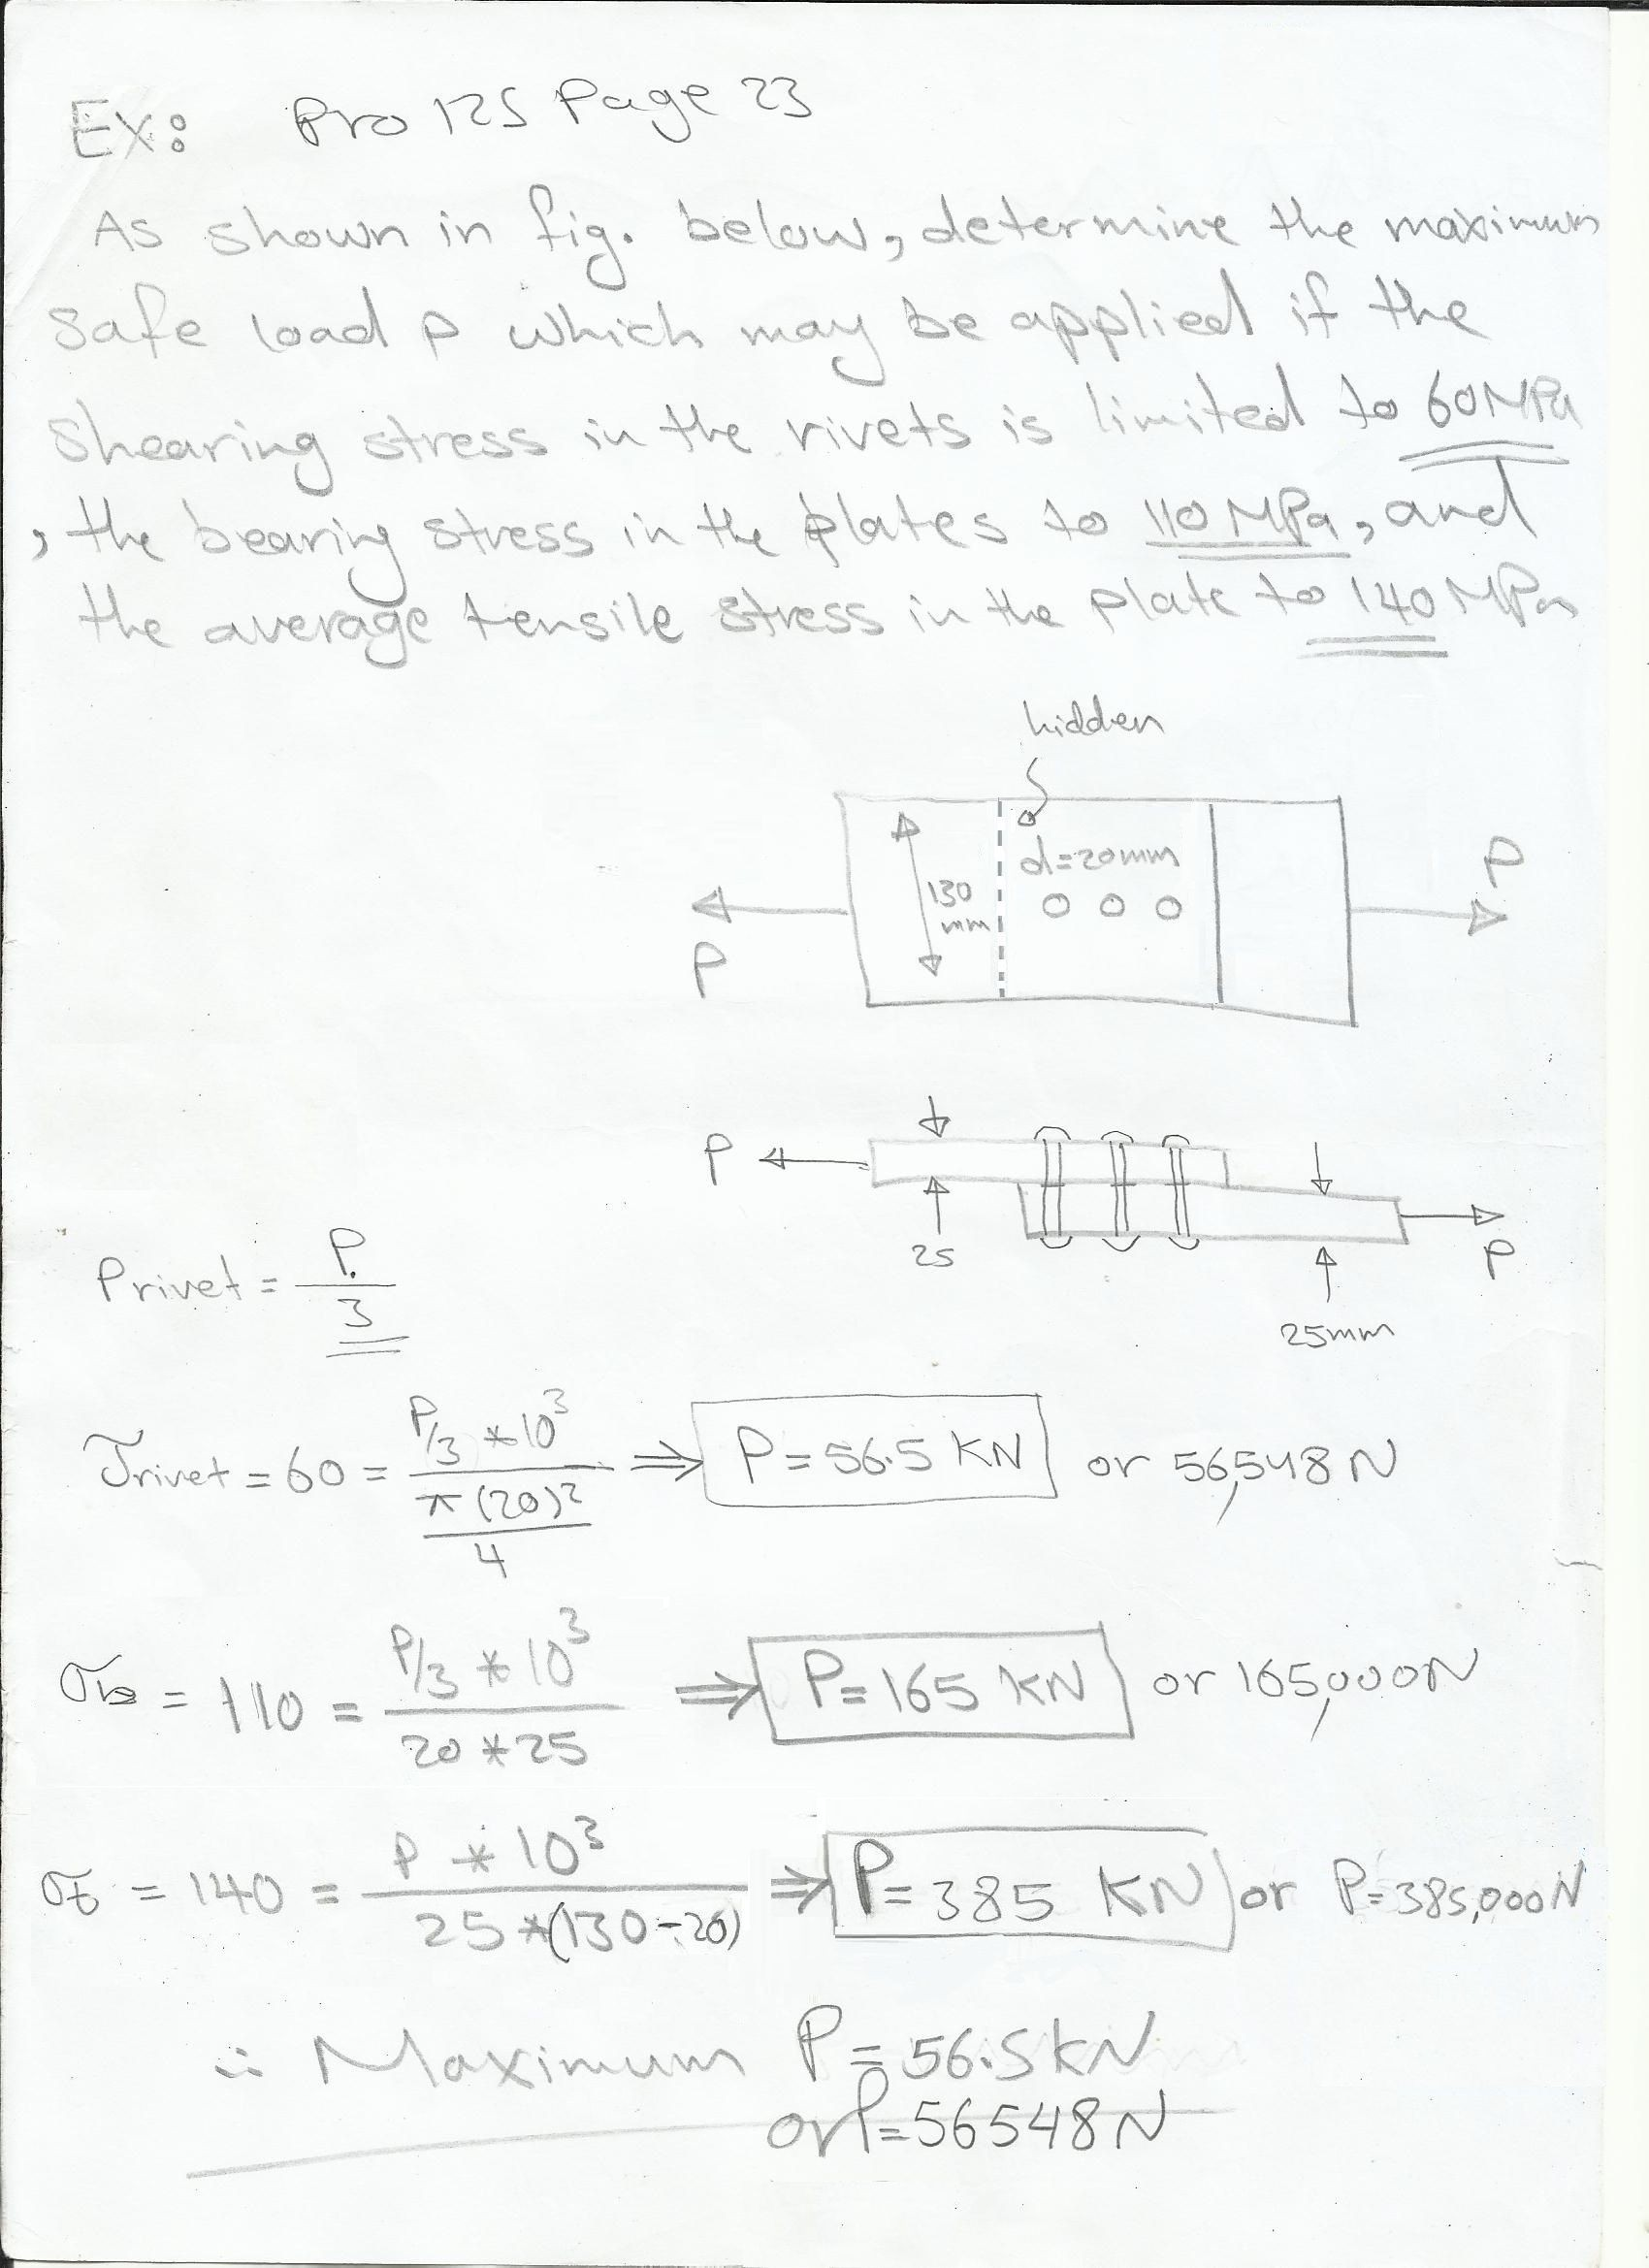 EX: Pro 125 Page 23
As shown in fig. below, determine the maximum
safe load P which may be applied if the
shearing stress in the rivets is limited to 60 MPa
, the bearing stress in the plates to 110 MPa, and
the average tensile stress in the plate to 140 MPa
hidden
d=20mm
130
mm
P
P
P
25
P
25mm
Privet = P/3
τrivet = 60 = (P/3 * 10³) / (π(20)²/4) ⇒ P = 56.5 KN or 56,548 N
σb = 110 = (P/3 * 10³) / (20 * 25) ⇒ P = 165 KN or 165,000N
σt = 140 = (P * 10³) / (25 * (130-20)) ⇒ P = 385 KN or P = 385,000N
∴ Maximum P = 56.5 kN
or P = 56548 N